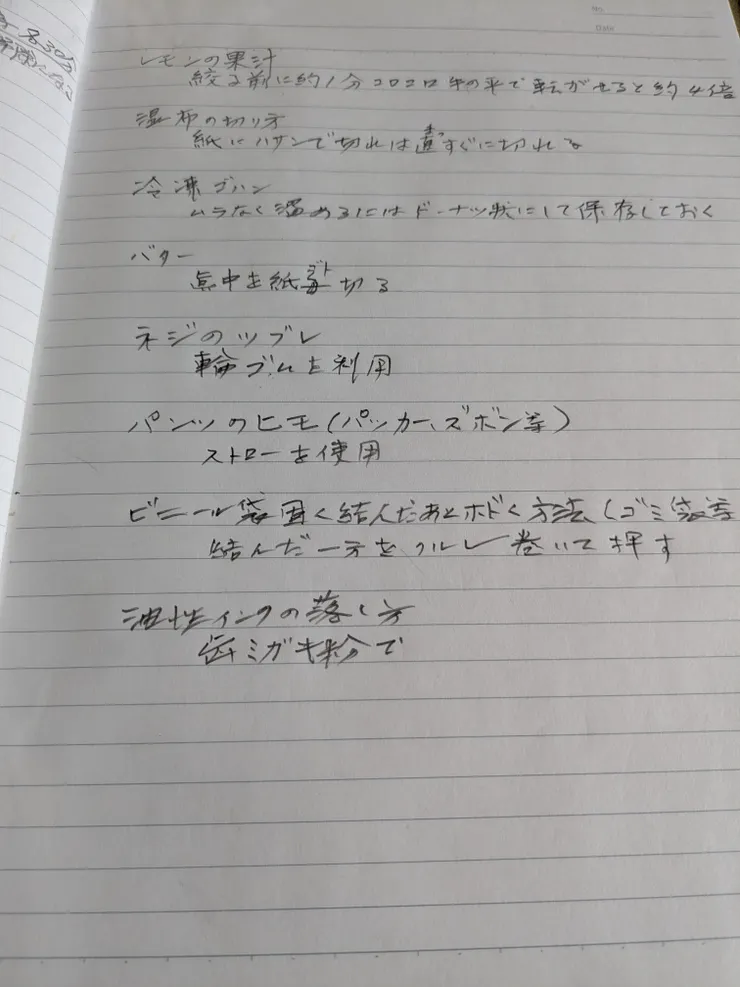 No.
Date
レモンの果汁
絞る前に約1分コロコロ手の平で転がせると約4倍
湿布の切り方
紙にハサンで切れは真っ直すぐに切れる
冷凍ゴハン
ムラなく温めるにはドーナツ状にして保存しておく
バター
真中を紙ゴト切る
ネジのツブレ
輪ゴムを利用
パンツのヒモ(パッカー、ズボン等)
ストローを使用
ビニール袋固く結んだあとホドく方法(ゴミ袋等
結んだ一方をクルクル巻いて押す
油性インクの落し方
歯ミガキ粉で